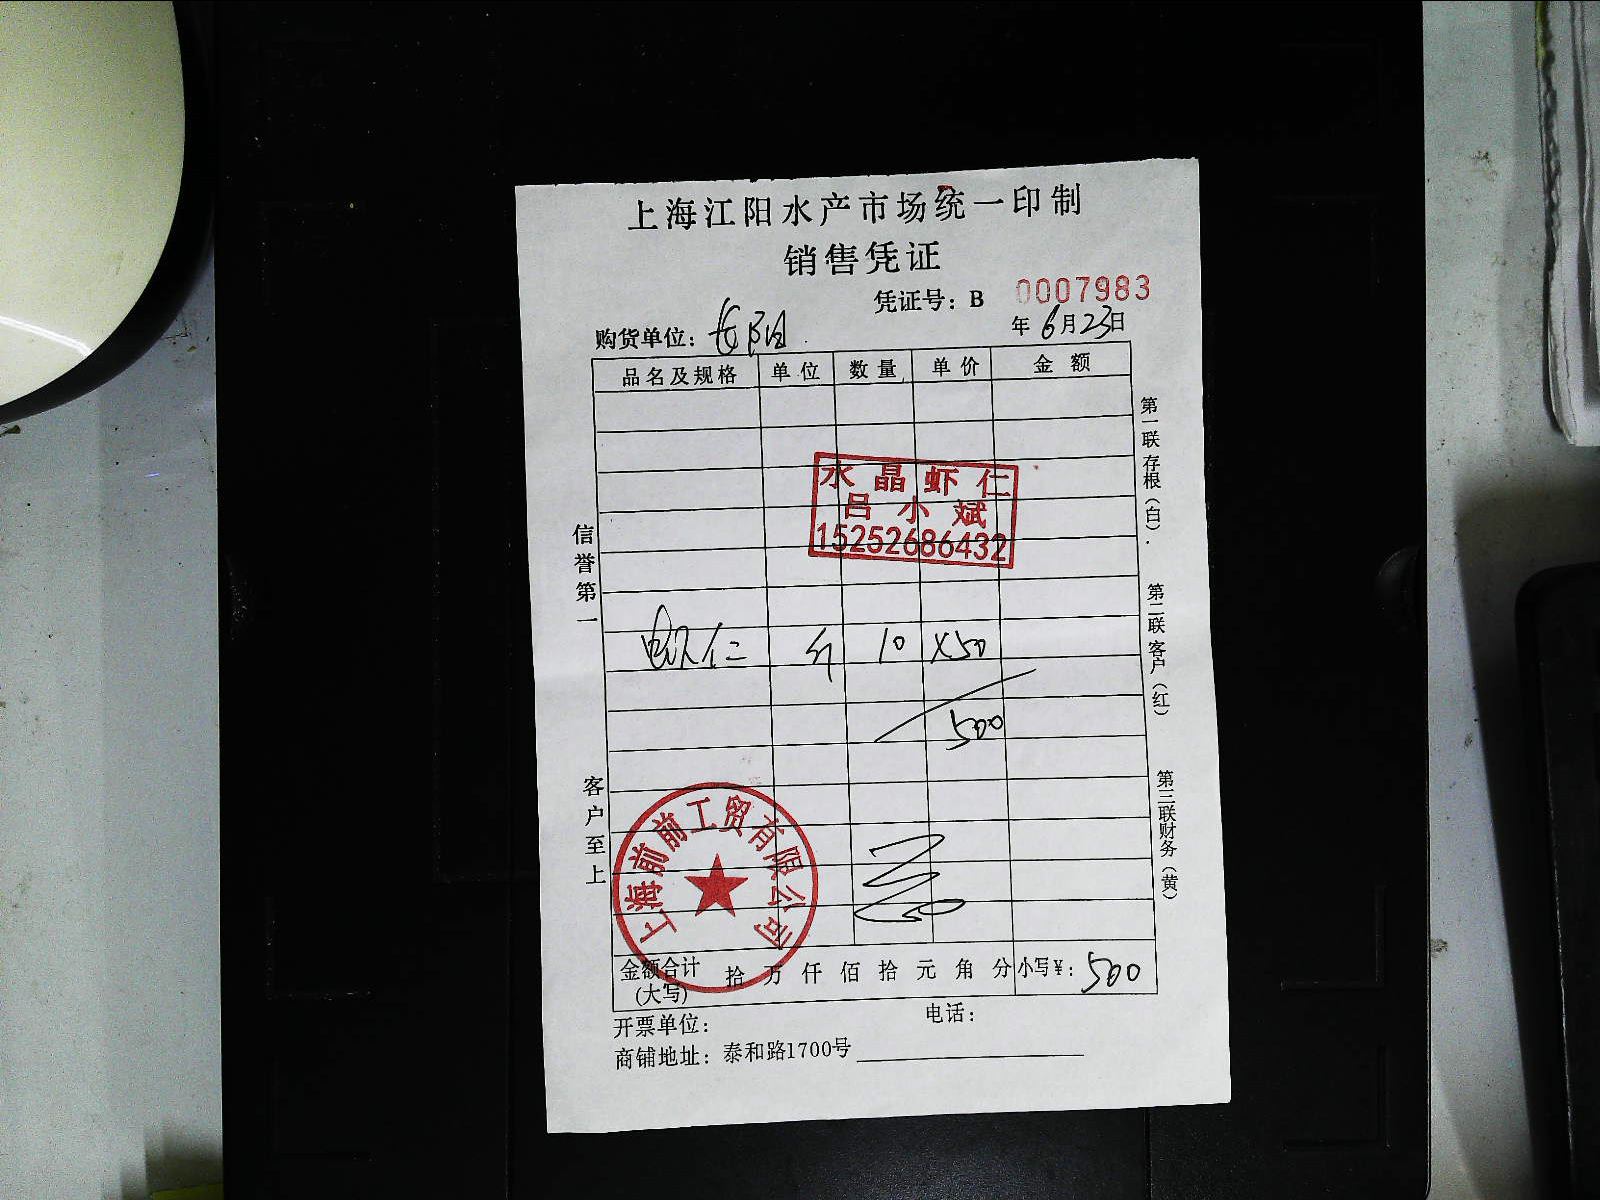 上海江阳水产市场统一印制
销售凭证
凭证号：B 0007983
购货单位：长阳
年6月23日
品名及规格 单位 数量 单价 金额
水晶虾仁
吕小斌
15252686432
仁 斤 10 X50
500
信誉第一
客户至上
第一联存根（白）.
第二联客户（红）
第三联财务（黄）
上海前前工贸有限公司
金额合计(大写) 拾万仟佰拾元角分 小写¥：500
开票单位： 电话：
商铺地址：泰和路1700号